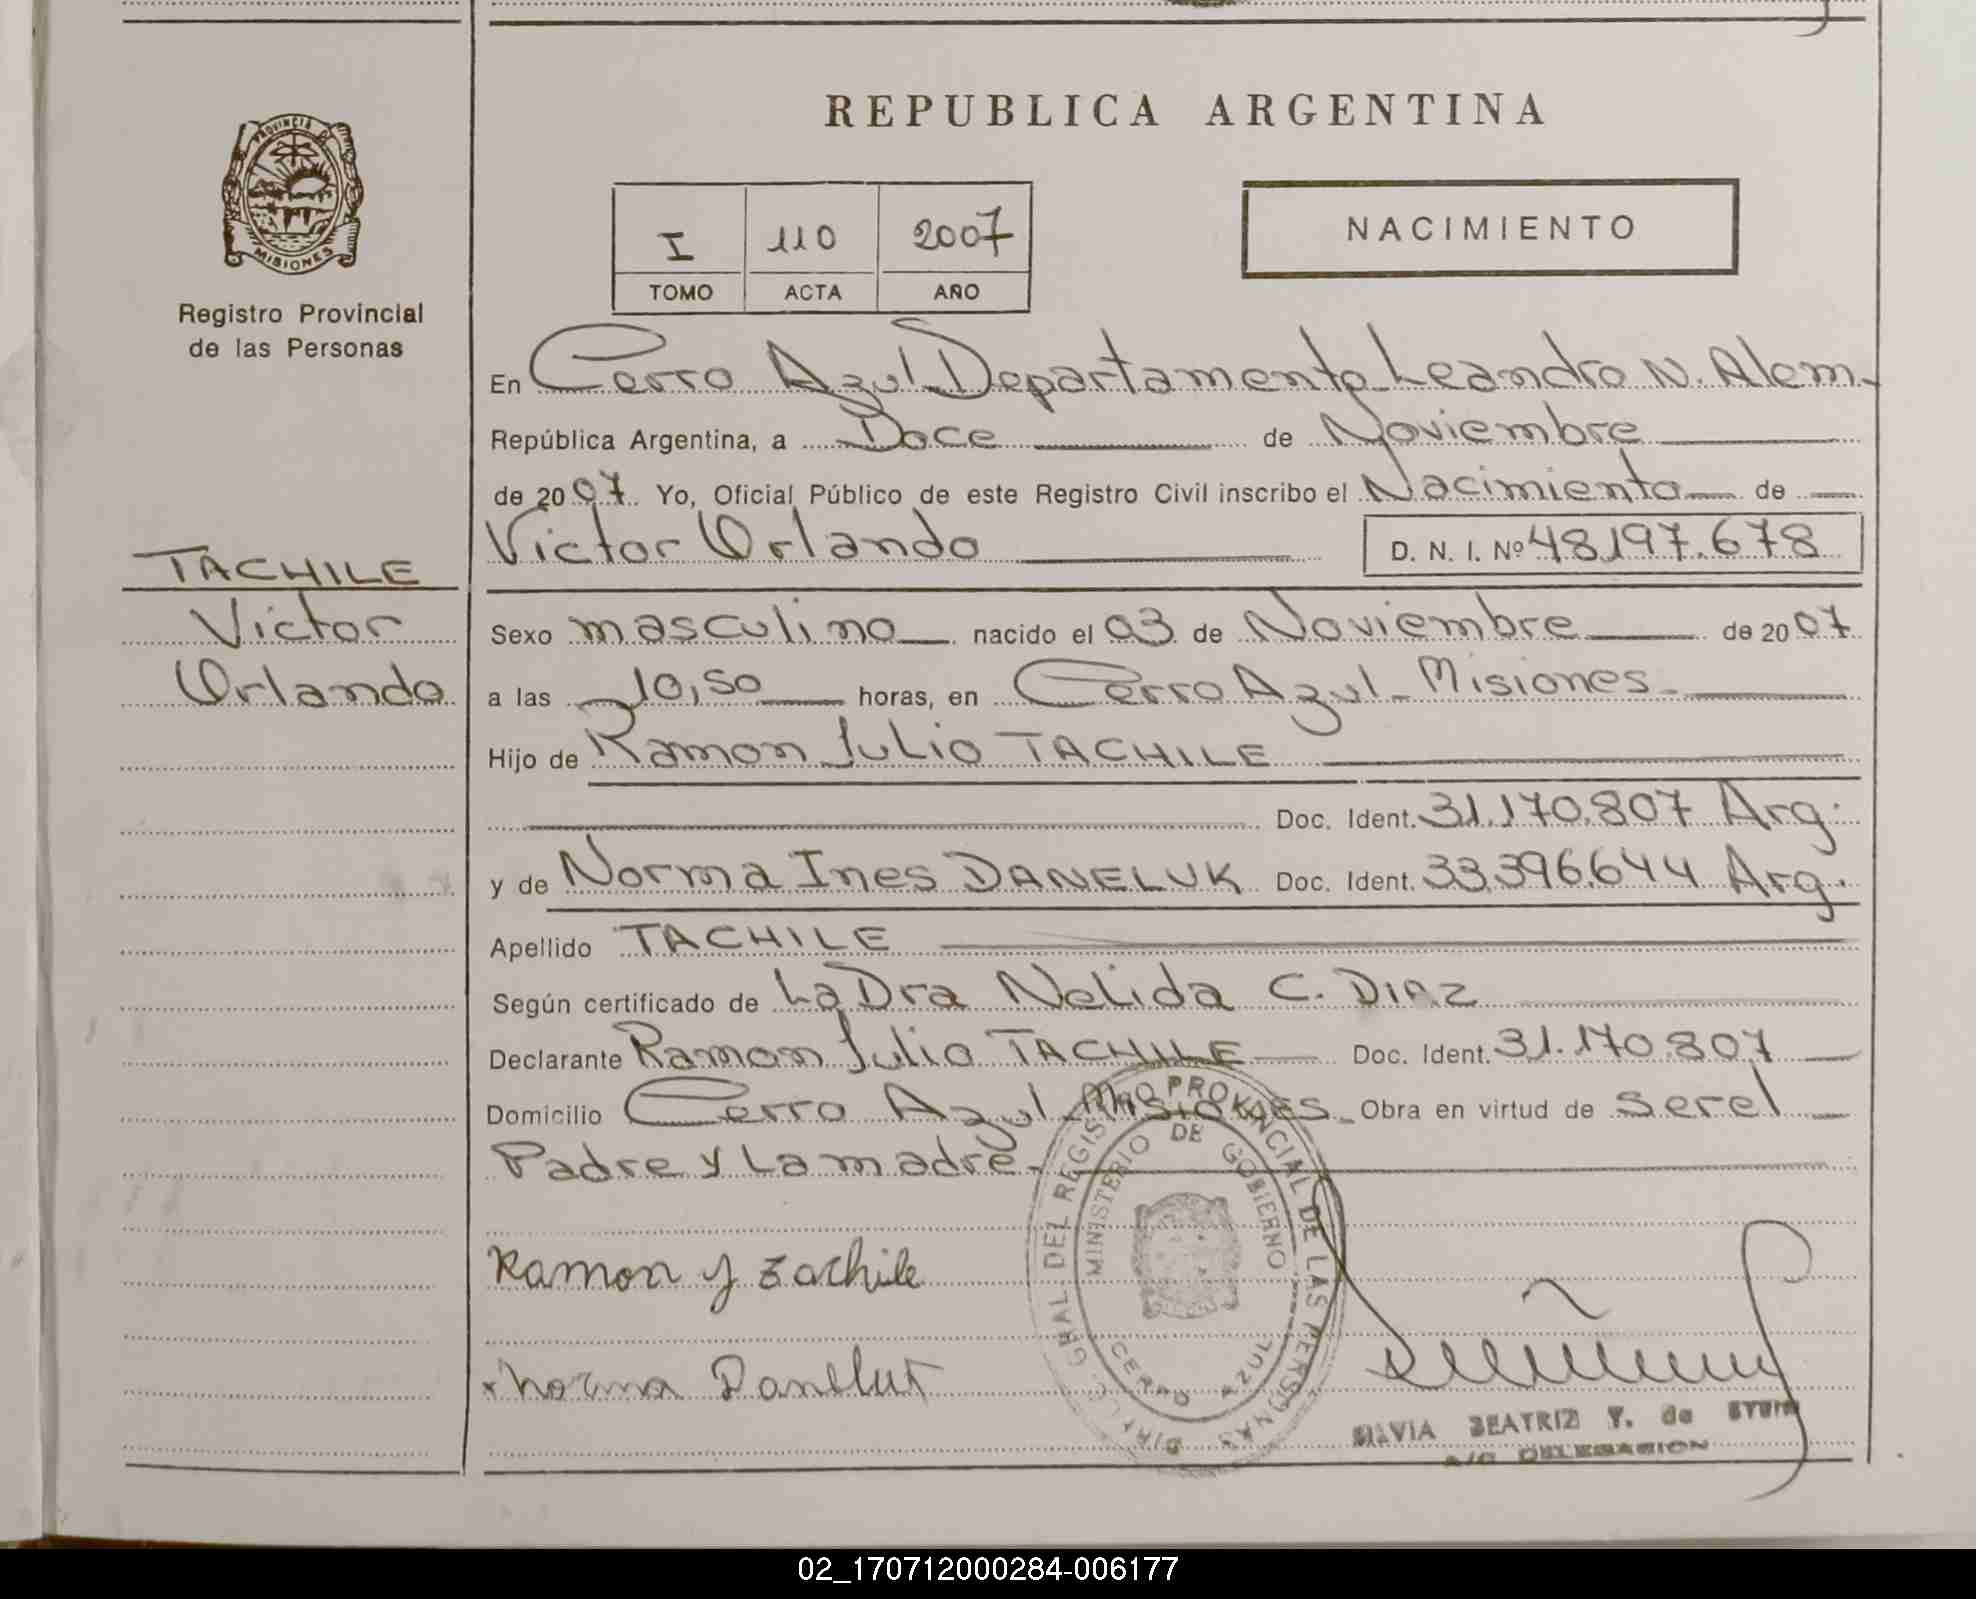 REPUBLICA ARGENTINA
PROVINCIA D
MISIONES
Registro Provincial
de las Personas
I 110 2007
TOMO ACTA AÑO
NACIMIENTO
En Cerro Azul Departamento Leandro N. Alem-
República Argentina, a Doce de Noviembre
de 2007 Yo, Oficial Público de este Registro Civil inscribo el Nacimiento de
Victor Orlando D. N. I. Nº 48.197.678
TACHILE
Victor
Orlando
Sexo masculino nacido el 03 de Noviembre de 2007
a las 10,50 horas, en Cerro Azul - Misiones -
Hijo de Ramon Julio TACHILE
Doc. Ident. 31.170.807 Arg.
y de Norma Ines DANELUK Doc. Ident. 33.396.644 Arg.
Apellido TACHILE
Según certificado de La Dra Nelida C. DIAZ
Declarante Ramon Julio TACHILE Doc. Ident. 31.170.807
Domicilio Cerro Azul Misiones - Obra en virtud de ser el
Padre y La madre -
Ramon y Tachile
x Norma Daneluk
DE LAS PERSONAS
MINISTERIO DE GOBIERNO
CERRO AZUL
SILVIA BEATRIZ Y. de
A/C DELEGACION
02_170712000284-006177